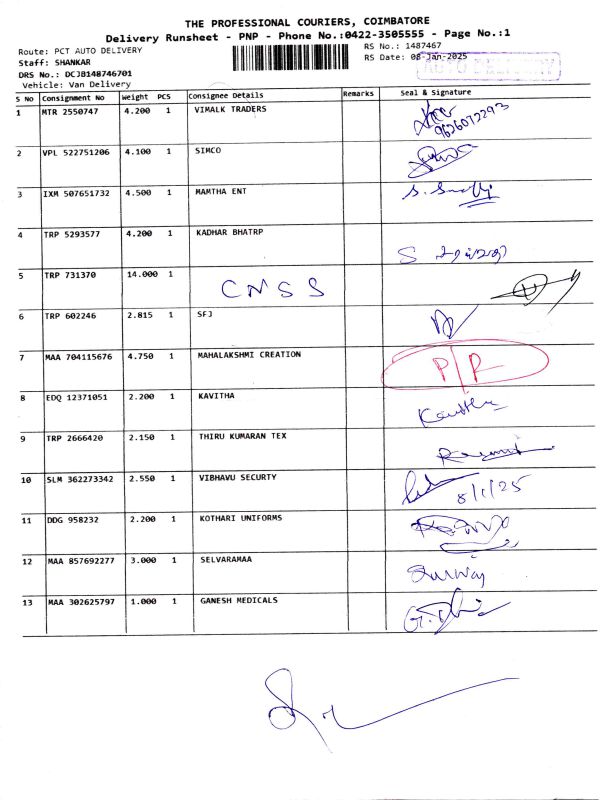 THE PROFESSIONAL COURIERS, COIMBATORE
Delivery Runsheet - PNP - Phone No.:0422-3505555 - Page No.:1
Route: PCT AUTO DELIVERY
RS No.: 1487467
Staff: SHANKAR
RS Date: 08-Jan-2025
AUTO DELIVERY
DRS No.: DCJB148746701
Vehicle: Van Delivery
S No Consignment No Weight PCS Consignee Details Remarks Seal & Signature
1 MTR 2550747 4.200 1 VIMALK TRADERS
9626072293
2 VPL 522751206 4.100 1 SIMCO
3 IXM 507651732 4.500 1 MAMTHA ENT
4 TRP 5293577 4.200 1 KADHAR BHATRP
5 TRP 731370 14.000 1 CNSS
6 TRP 602246 2.815 1 SFJ
7 MAA 704115676 4.750 1 MAHALAKSHMI CREATION P/R
8 EDQ 12371051 2.200 1 KAVITHA Kavitha
9 TRP 2666420 2.150 1 THIRU KUMARAN TEX
10 SLM 362273342 2.550 1 VIBHAVU SECURTY 8/1/25
11 DDG 958232 2.200 1 KOTHARI UNIFORMS
12 MAA 857692277 3.000 1 SELVARAMAA
13 MAA 302625797 1.000 1 GANESH MEDICALS